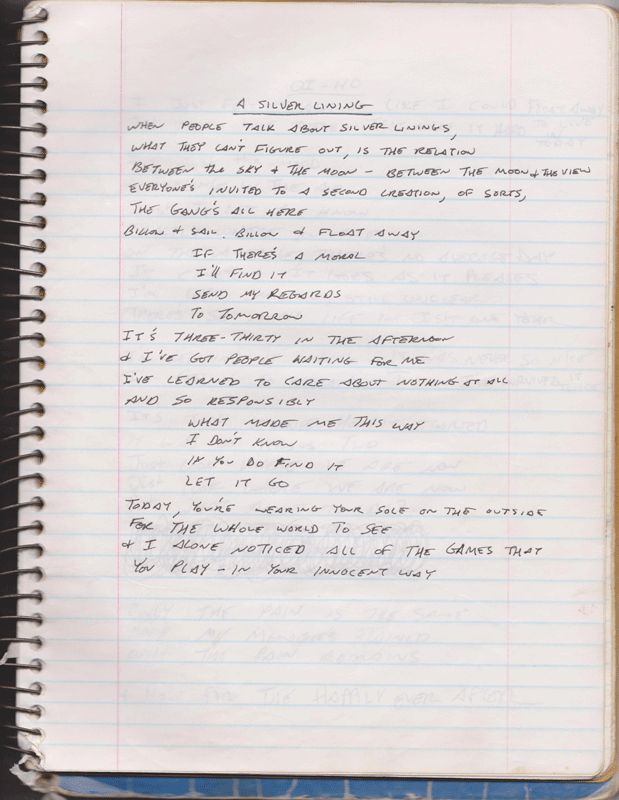 A SILVER LINING
WHEN PEOPLE TALK ABOUT SILVER LININGS,
WHAT THEY CAN'T FIGURE OUT, IS THE RELATION
BETWEEN the SKY & THE MOON - BETWEEN THE MOON & THE VIEW
EVERYONE'S INVITED TO A SECOND CREATION, OF SORTS,
THE GANG'S ALL HERE
BILLOW & SAIL. BILLOW & FLOAT AWAY
IF THERE'S A MORAL
I'll FIND IT
SEND MY REGARDS
TO TOMORROW
IT'S THREE-THIRTY IN THE AFTERNOON
& I'VE GOT PEOPLE WAITING FOR ME
I'VE LEARNED TO CARE ABOUT NOTHING AT ALL
AND SO RESPONSIBLY
WHAT MADE ME THIS WAY
I DON'T KNOW
IF YOU DO FIND IT
LET IT GO
TODAY, YOU'RE WEARING YOUR SOLE ON THE OUTSIDE
FOR THE WHOLE WORLD TO SEE
& I ALONE NOTICED ALL OF THE GAMES THAT
YOU PLAY - IN YOUR INNOCENT WAY